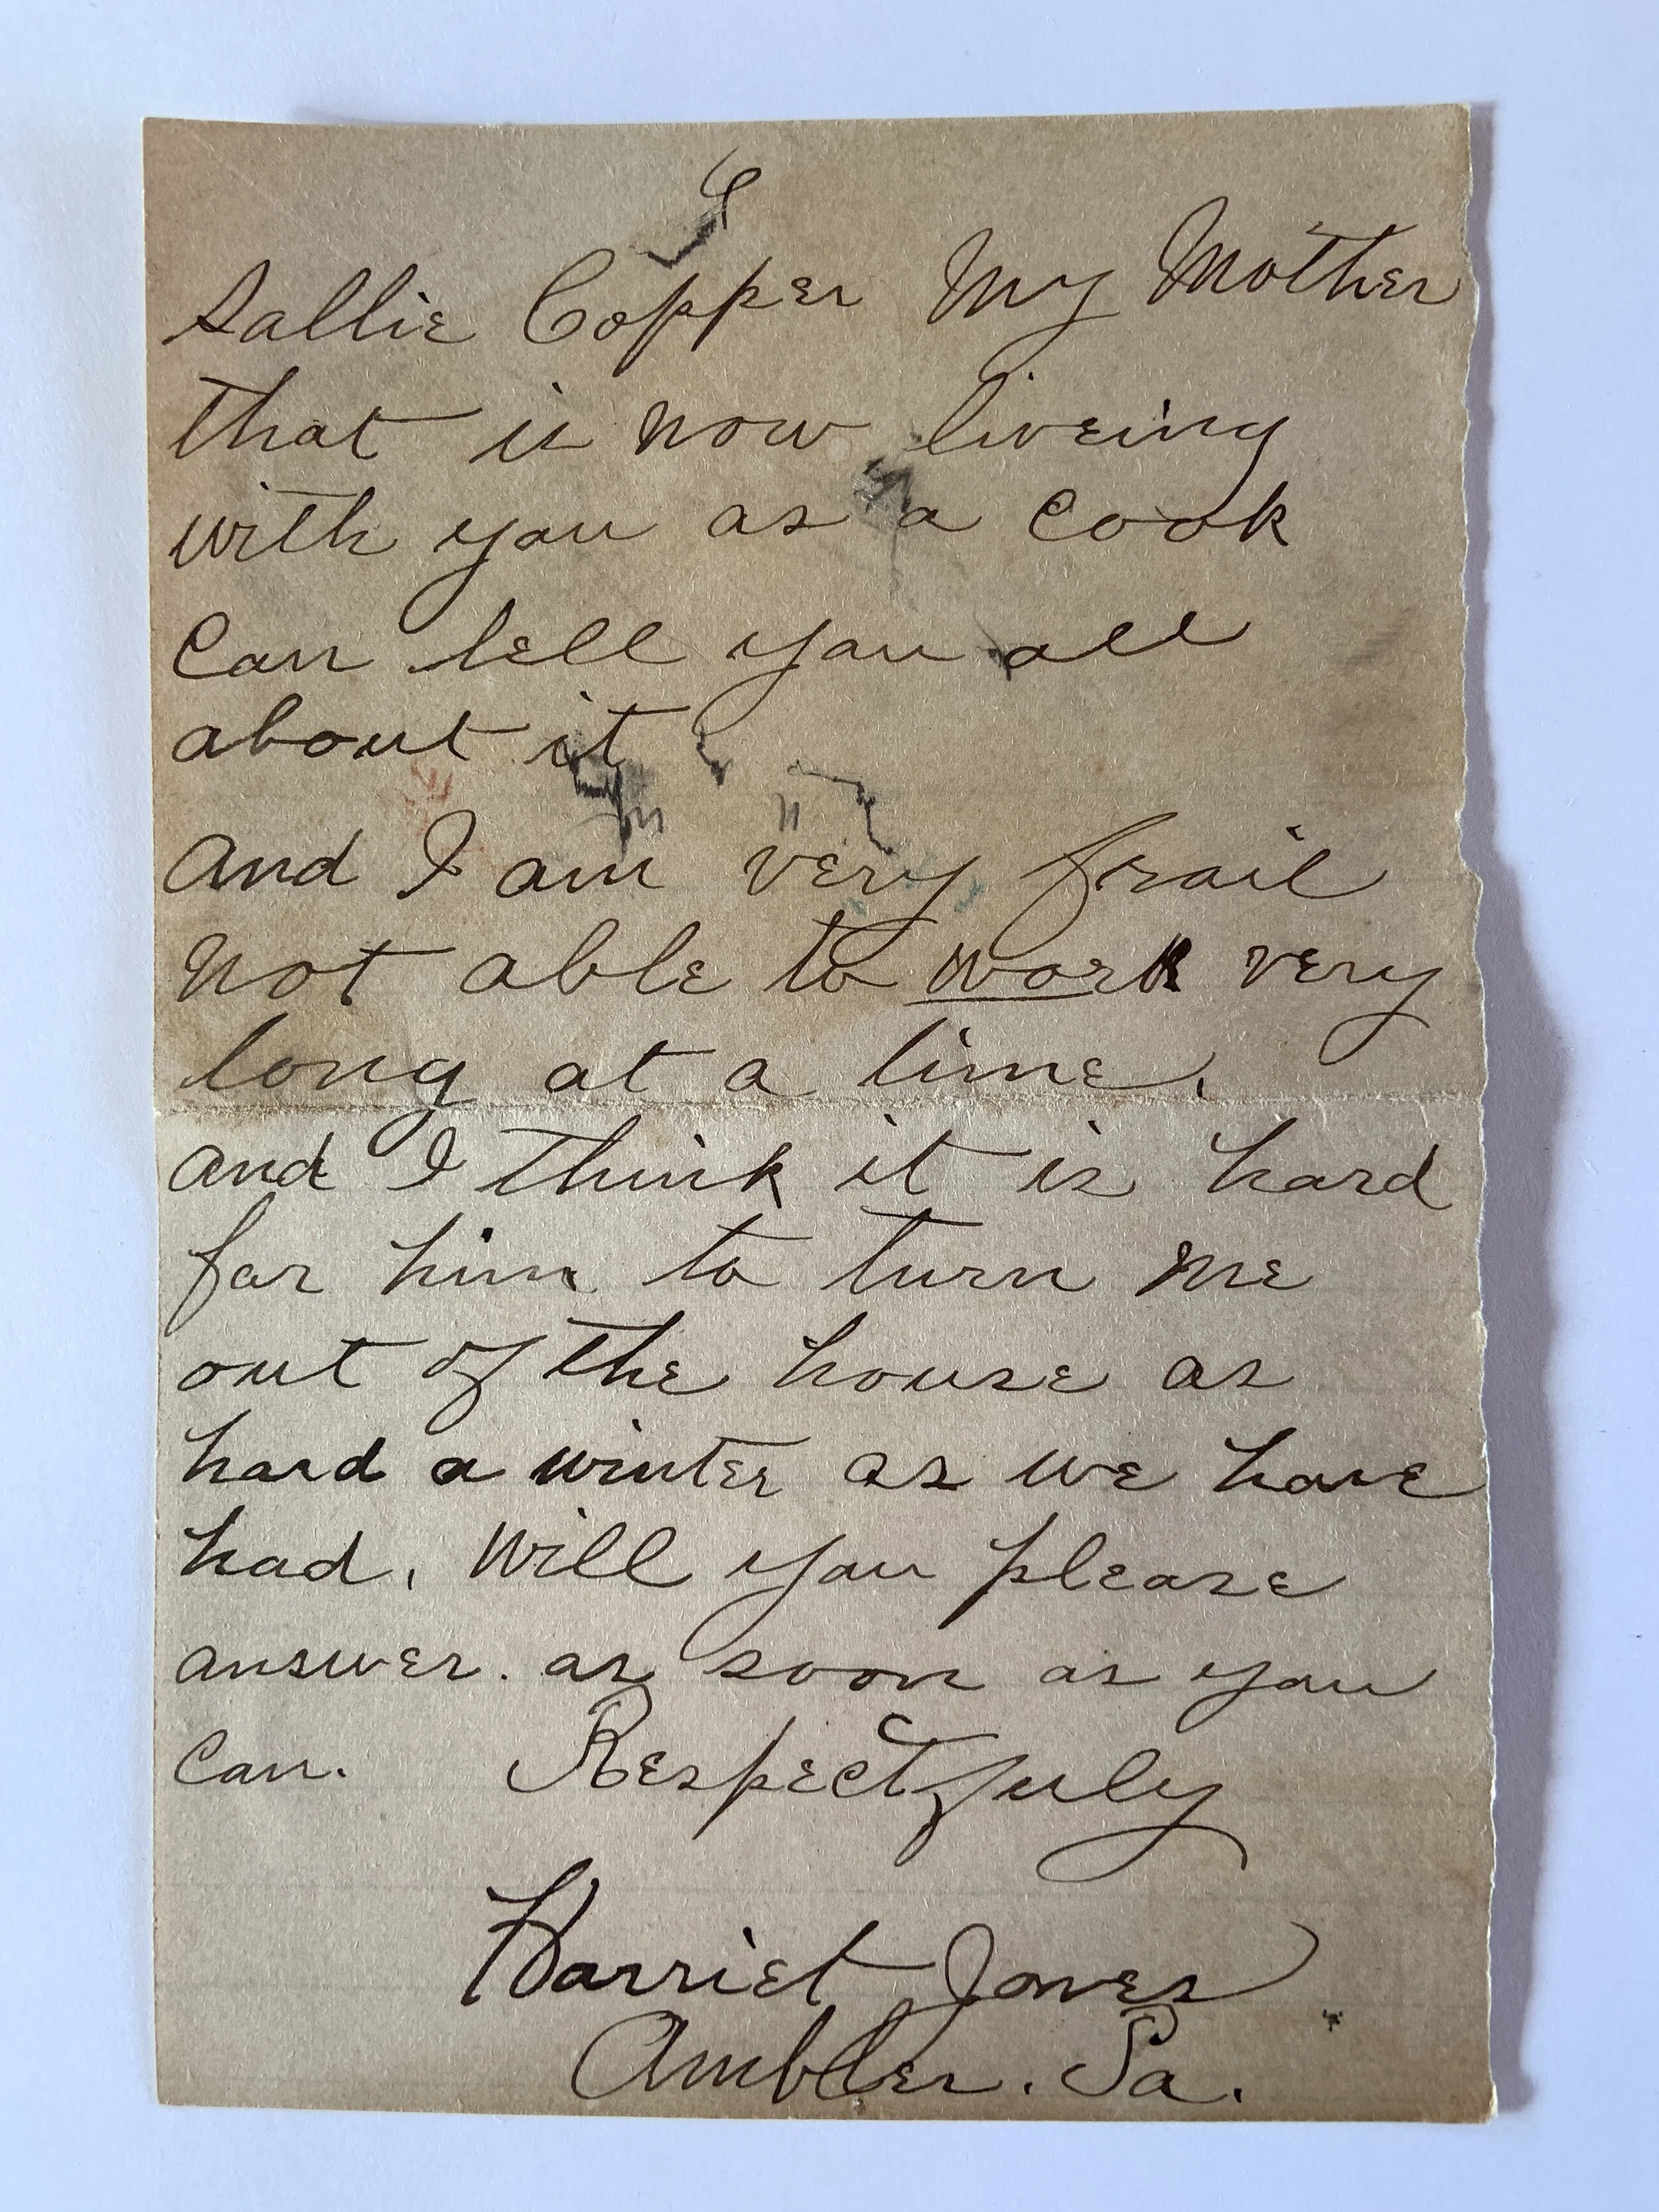 Sallie Copper My Mother
that is now liveing
with you as a Cook
Can tell you all
about it
and I am very frail
not able to work very
long at a time.
and I think it is hard
for him to turn me
out of the house as
hard a winter as we have
had. Will you please
answer. as soon as you
Can. Respectfuly
Harriet Jones
Ambler. Pa.